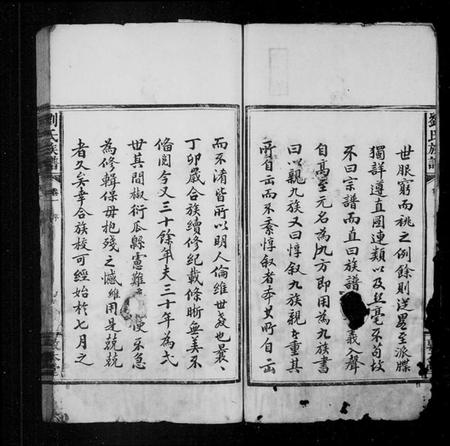 劉氏族譜
世服窮而祧之例餘則送畧至派牒
獨詳遵直圖連類以及絲毫不苟攷
不曰宗譜而直曰族譜 義入聲
自高至元名為九方即用為九族書
曰以親九族又曰惇叙九族親之重其
所自出而不紊惇叙者本其所自出
而不淆皆所以明人倫維世教也曩
丁卯歲合族續修紀載條晰無美不
俻閱今又三十餘年夫三十年為弌
世其間椒衍瓜緜憲難 慢不急
為修輯保毋抱殘之憾維用是兢兢
者久矣幸合族校可經始於七月之
劉氏族譜